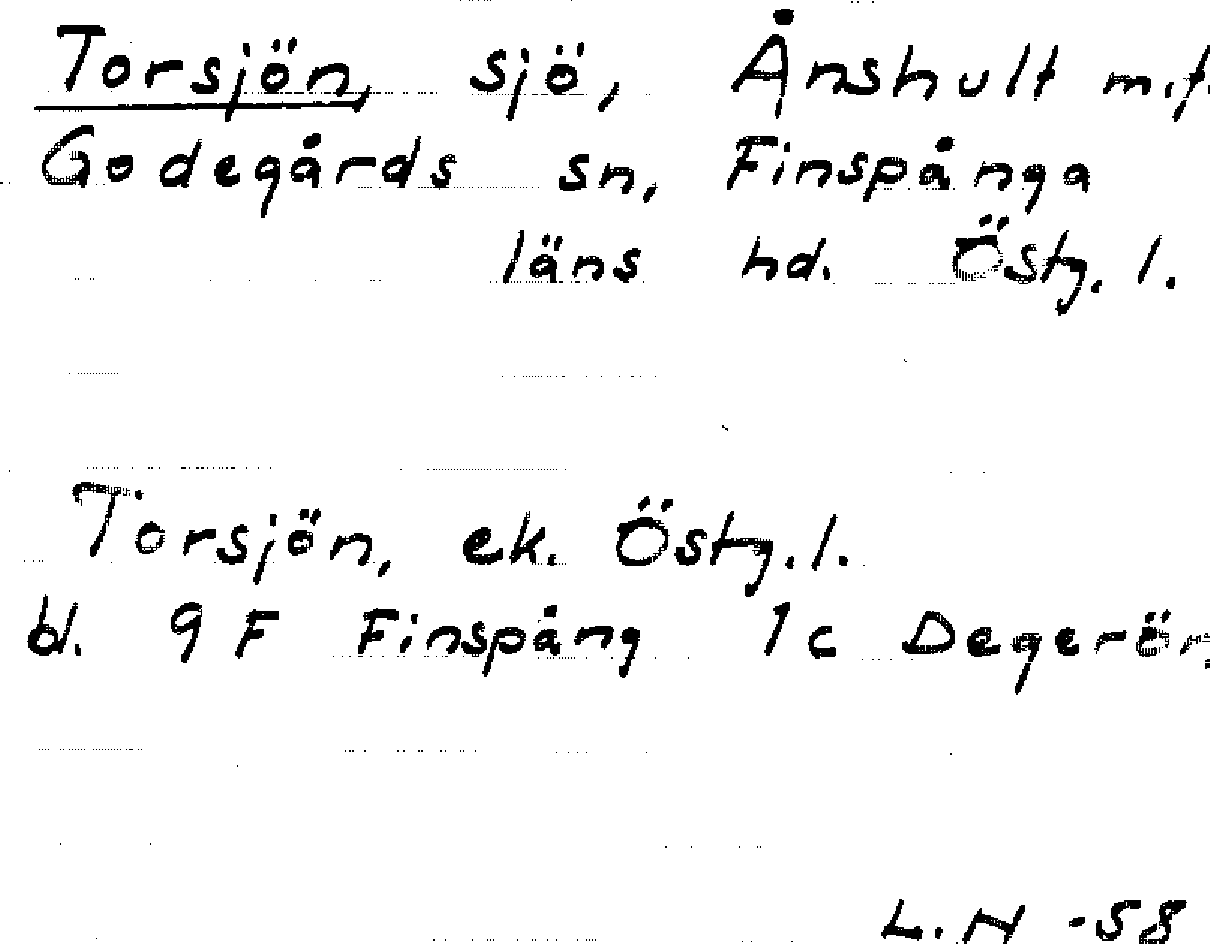 Torsjön, sjö, Ånshult m.f.
Godegårds sn, Finspånga
läns hd. Östg. l.
Torsjön, ek. Östg. l.
bl. 9 F Finspång 1c Degerön
L.H -58